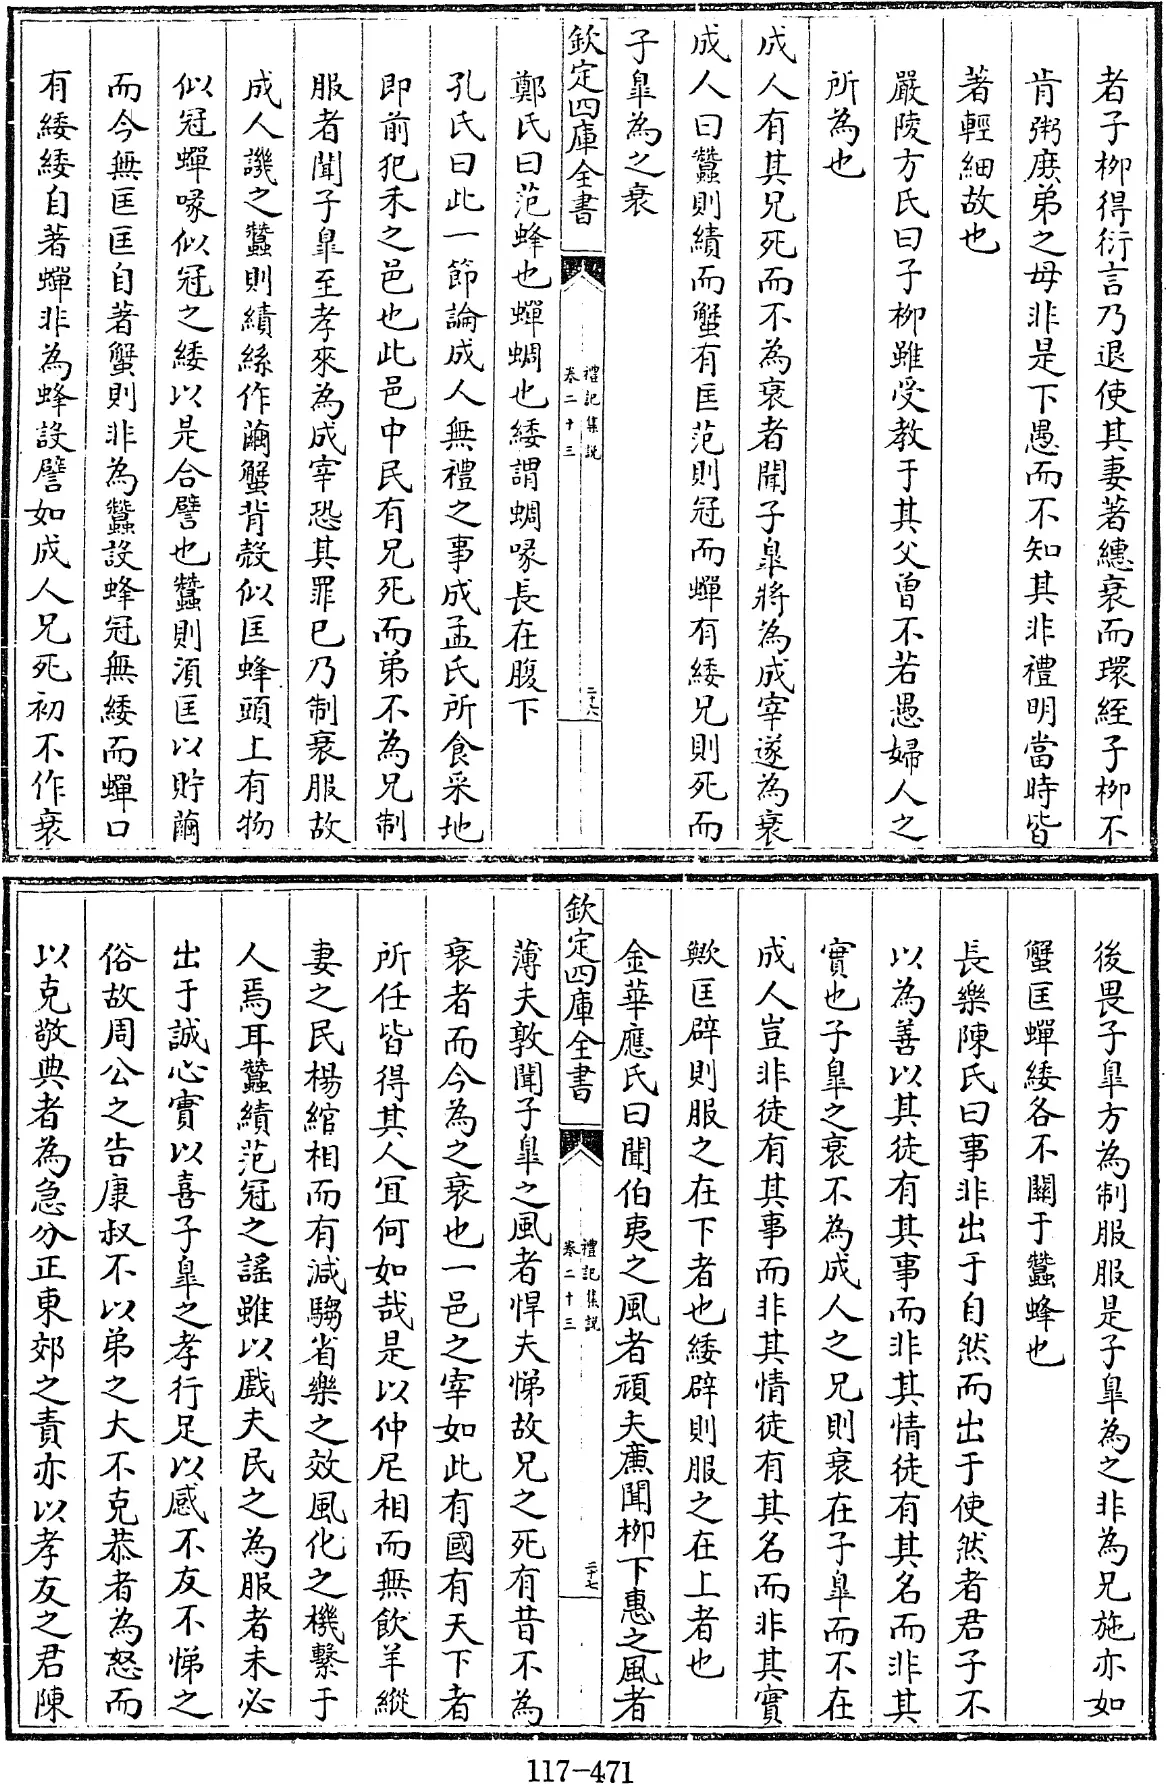 者子栁得衍言乃退使其妻著繐衰而環絰子栁不
肯粥庶弟之母非是下愚而不知其非禮明當時皆
著輕細故也
嚴陵方氏曰子栁雖受教于其父曾不若愚婦人之
所為也
成人有其兄死而不為衰者聞子臯將為成宰遂為衰
成人曰蠶則績而蟹有匡范則冠而蟬有緌兄則死而
子臯為之衰
欽定四庫全書
禮記集說
卷二十三
二十六
鄭氏曰范蜂也蟬蜩也緌謂蜩喙長在腹下
孔氏曰此一節論成人無禮之事成孟氏所食采地
即前犯禾之邑也此邑中民有兄死而弟不為兄制
服者聞子臯至孝來為成宰恐其罪已乃制衰服故
成人譏之蠶則績絲作繭蟹背殻似匡蜂頭上有物
似冠蟬喙似冠之緌以是合譬也蠶則湏匡以貯繭
而今無匡匡自著蟹則非為蠶設蜂冠無緌而蟬口
有緌緌自著蟬非為蜂設譬如成人兄死初不作衰
後畏子臯方為制服服是子臯為之非為兄施亦如
蟹匡蟬緌各不闗于蠶蜂也
長樂陳氏曰事非出于自然而出于使然者君子不
以為善以其徒有其事而非其情徒有其名而非其
實也子臯之衰不為成人之兄則衰在子臯而不在
成人豈非徒有其事而非其情徒有其名而非其實
歟匡辟則服之在下者也緌辟則服之在上者也
金華應氏曰聞伯夷之風者頑夫亷聞栁下惠之風者
欽定四庫全書
禮記集說
卷二十三
二十七
薄夫敦聞子臯之風者悍夫悌故兄之死有昔不為
衰者而今為之衰也一邑之宰如此有國有天下者
所任皆得其人宜何如哉是以仲尼相而無飲羊縱
妻之民楊綰相而有減騶省樂之效風化之機繫于
人焉耳蠶績范冠之謡雖以戲夫民之為服者未必
出于誠心實以喜子臯之孝行足以感不友不悌之
俗故周公之告康叔不以弟之大不克恭者為怒而
以克敬典者為急分正東郊之責亦以孝友之君陳
117-471